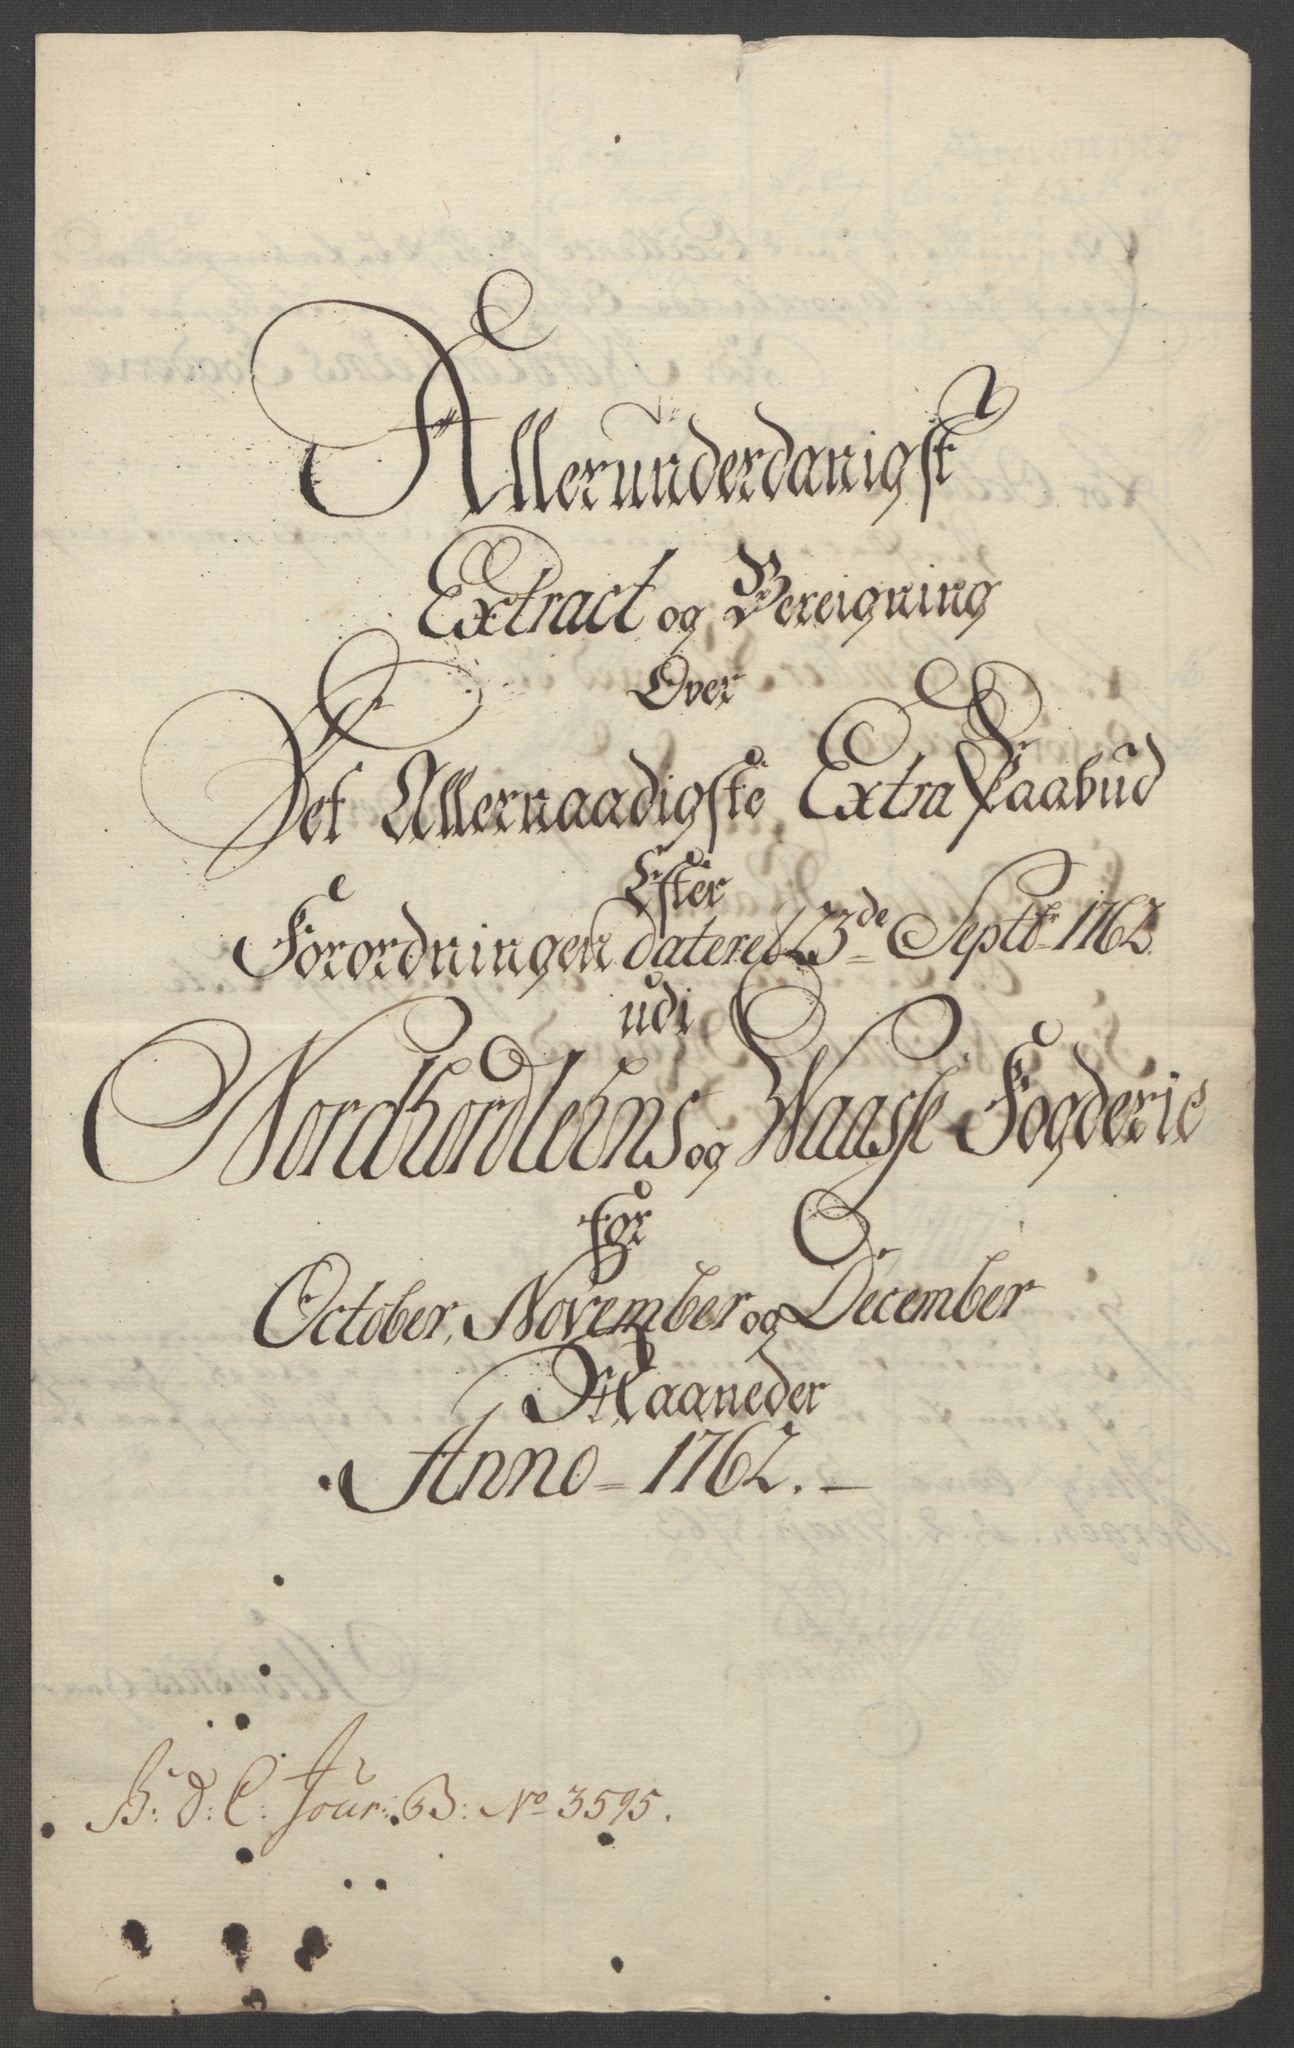 Allerunderdanigst
Extract og Bereigning
Over
Det Allernaadigste Extra Paabud
Efter
Forordningen dateret 23de Septbr 1762
udi
Nordhordlehns og Waasse Fogderie
For
October, November og December
Maaneder
Anno 1762.
B: d: C: Jour: B: No 3595.